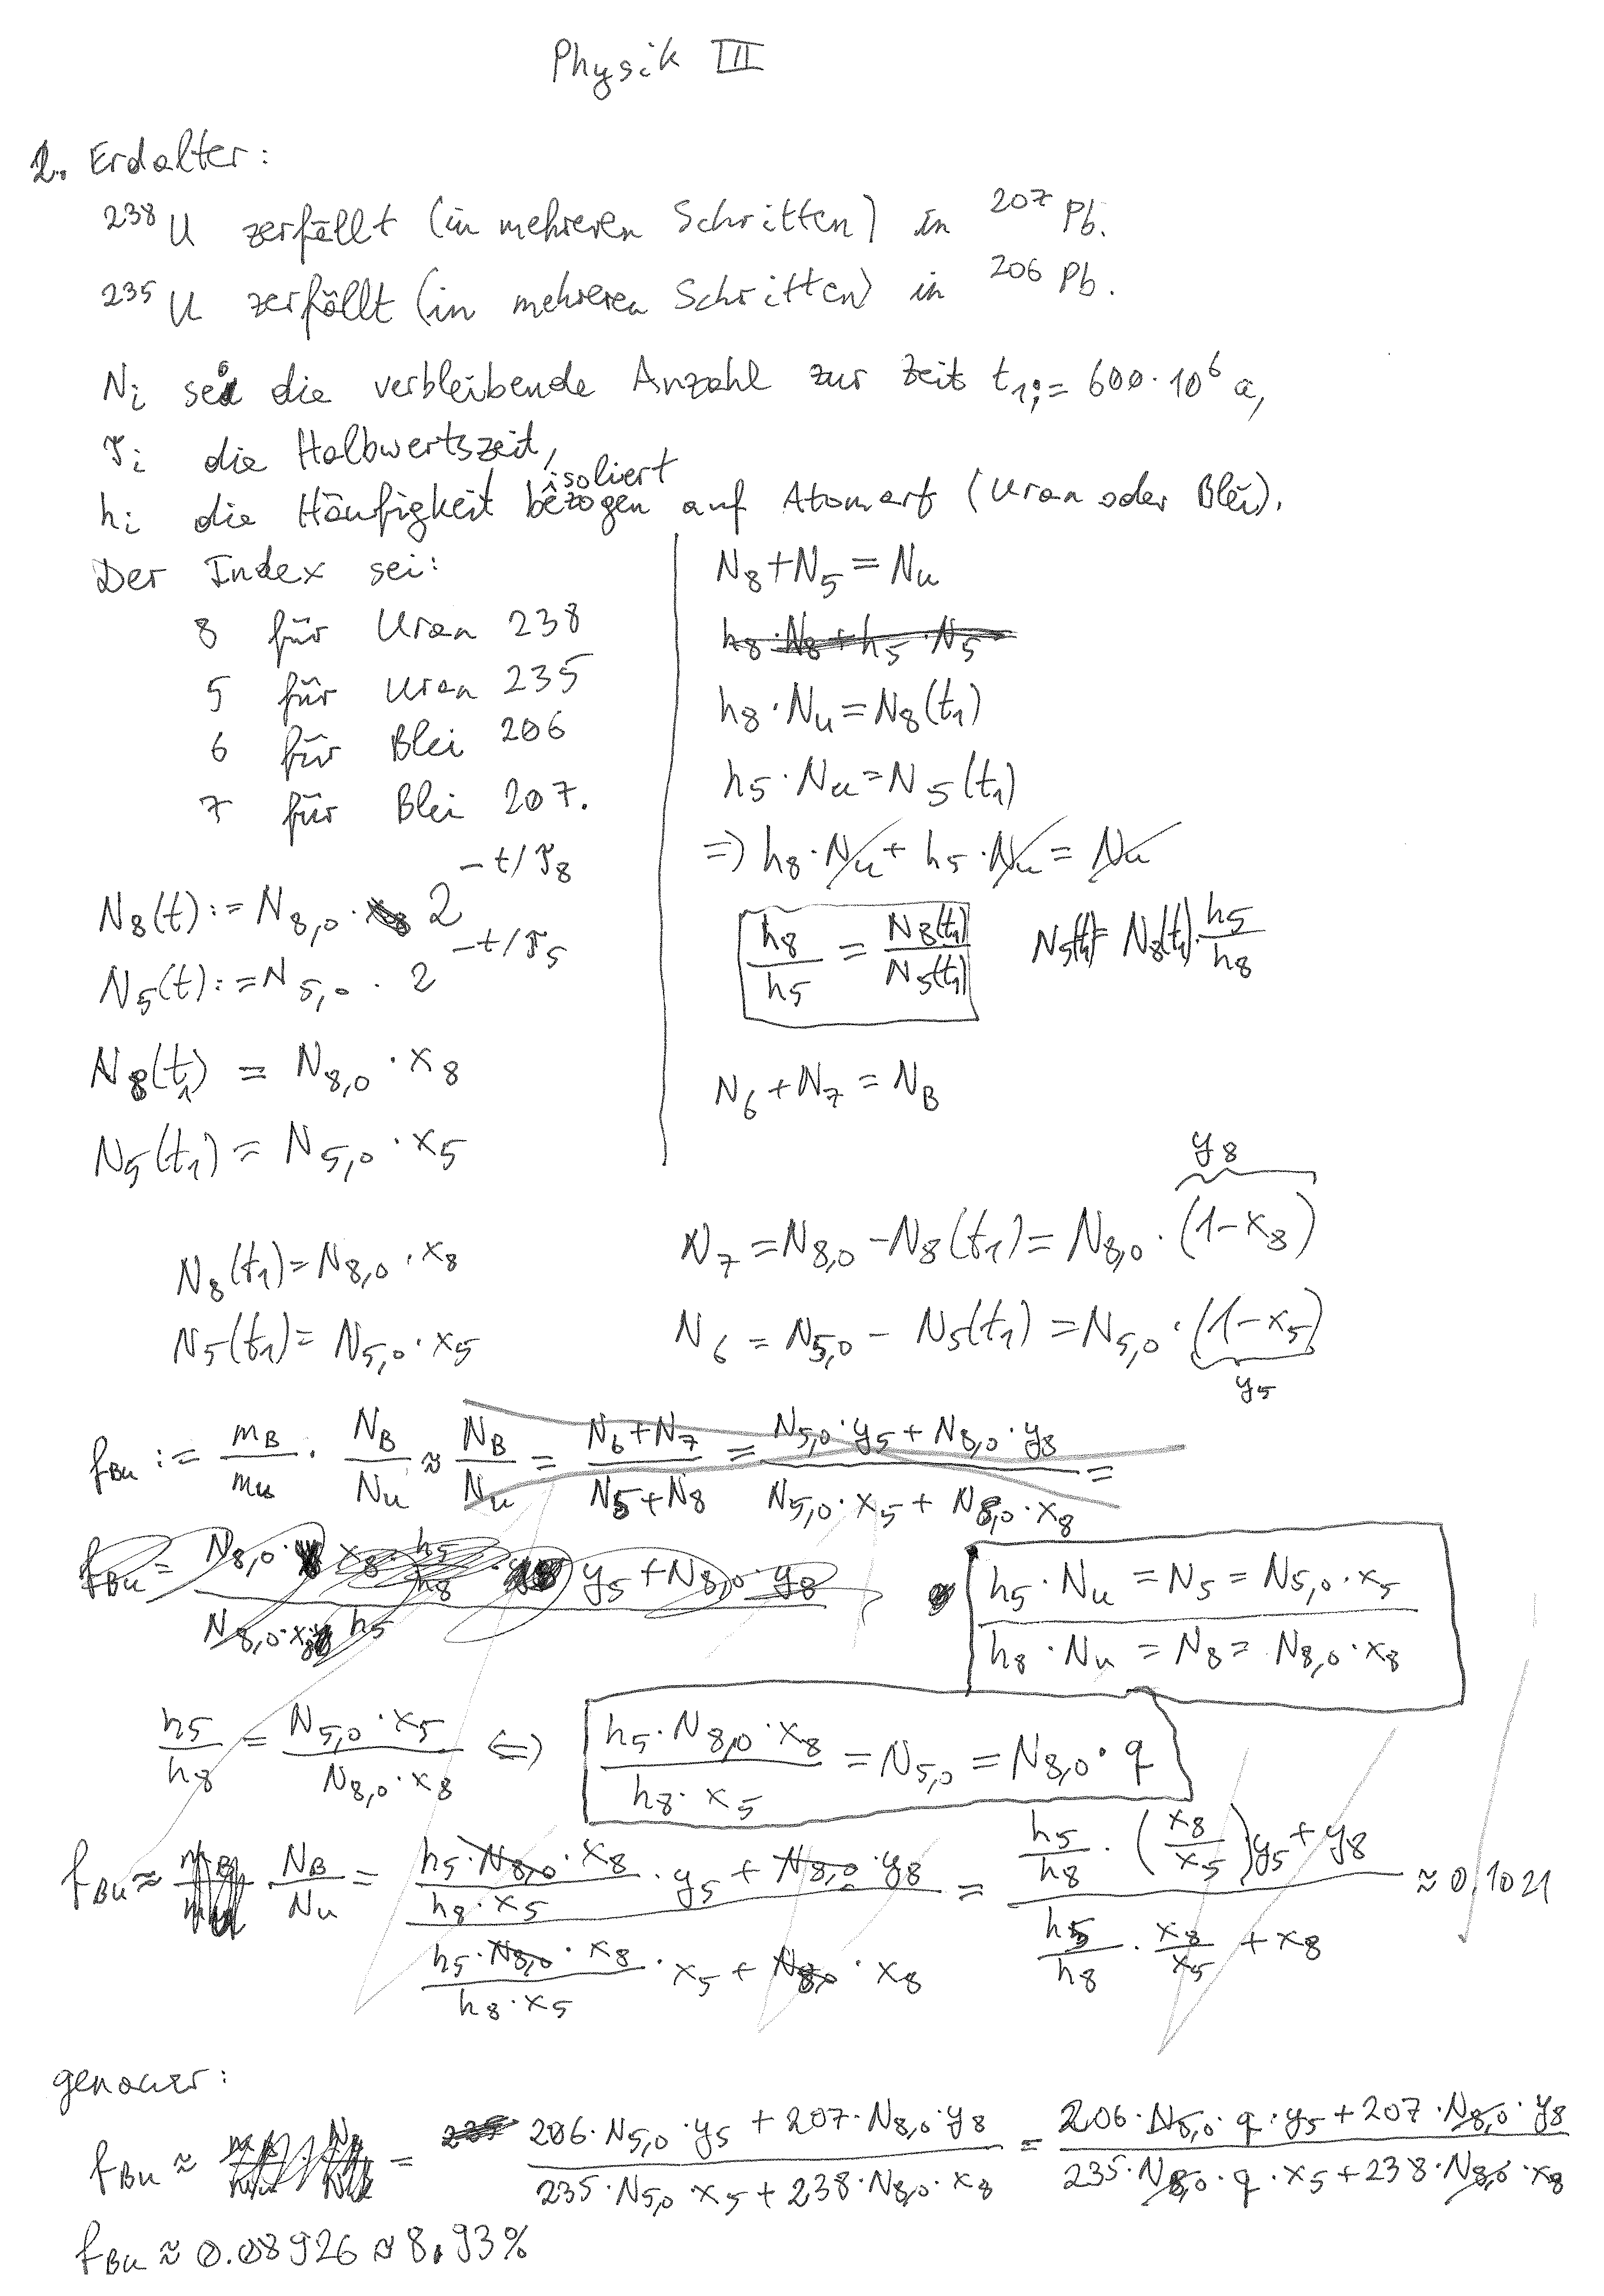 Physik III
2. Erdalter:
²³⁸U zerfällt (in mehreren Schritten) in ²⁰⁷Pb.
²³⁵U zerfällt (in mehreren Schritten) in ²⁰⁶Pb.
N_i sei die verbleibende Anzahl zur Zeit t₁ := 600·10⁶ a,
τ_i die Halbwertszeit,
h_i die Häufigkeit isoliert bezogen auf Atomart (Uran oder Blei).
Der Index sei:
8 für Uran 238
5 für Uran 235
6 für Blei 206
7 für Blei 207.
N₈(t) := N₈,₀ · 2^(-t/τ₈)
N₅(t) := N₅,₀ · 2^(-t/τ₅)
N₈(t₁) = N₈,₀ · x₈
N₅(t₁) = N₅,₀ · x₅
N₈ + N₅ = N_u
h₈·N₈ + h₅·N₅
h₈ · N_u = N₈(t₁)
h₅ · N_u = N₅(t₁)
=> h₈ · N_u + h₅ · N_u = N_u
h₈/h₅ = N₈(t₁)/N₅(t₁)   N₅(t₁) = N₈(t₁) · h₅/h₈
N₆ + N₇ = N_B
N₈(t₁) = N₈,₀ · x₈
N₅(t₁) = N₅,₀ · x₅
y₈
N₇ = N₈,₀ - N₈(t₁) = N₈,₀ · (1-x₈)
N₆ = N₅,₀ - N₅(t₁) = N₅,₀ · (1-x₅)
y₅
f_Bu := m_B/m_u · N_B/N_u ≈ N_B/N_u = (N₆+N₇)/(N₅+N₈) = (N₅,₀·y₅ + N₈,₀·y₈)/(N₅,₀·x₅ + N₈,₀·x₈) =
f_Bu = N₈,₀ · x₈ · h₅/h₈ · y₅ + N₈,₀ · y₈
N₈,₀·x₈ h₅
h₅ · N_u = N₅ = N₅,₀ · x₅
h₈ · N_u = N₈ = N₈,₀ · x₈
h₅/h₈ = (N₅,₀ · x₅)/(N₈,₀ · x₈) <=> (h₅·N₈,₀·x₈)/(h₈·x₅) = N₅,₀ = N₈,₀ · q
f_Bu ≈ m_B/m_u · N_B/N_u = ((h₅·N₈,₀·x₈)/(h₈·x₅) · y₅ + N₈,₀·y₈)/((h₅·N₈,₀·x₈)/(h₈·x₅) · x₅ + N₈,₀ · x₈) = (h₅/h₈ · (x₈/x₅) y₅ + y₈)/(h₅/h₈ · x₈/x₅ + x₈) ≈ 0.1021
genauer:
f_Bu ≈ = (206·N₅,₀·y₅ + 207·N₈,₀·y₈)/(235·N₅,₀ x₅ + 238·N₈,₀·x₈) = (206·N₈,₀·q·y₅ + 207·N₈,₀·y₈)/(235·N₈,₀·q·x₅ + 238·N₈,₀·x₈)
f_Bu ≈ 0.08926 ≈ 8.93%